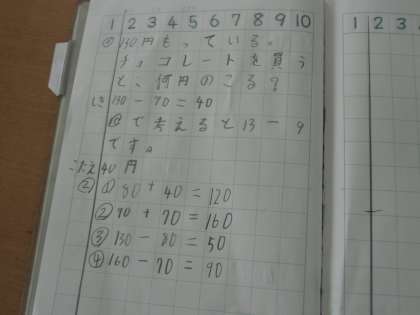 1 2 3 4 5 6 7 8 9 10
130円もっている。
チョコレートを買う
と、何円のこる?
しき 130 - 90 = 40
⑩で考えると13-9
です。
答え 40円
② ① 80 + 40 = 120
② 90 + 70 = 160
③ 130 - 80 = 50
④ 160 - 70 = 90
1 2 3